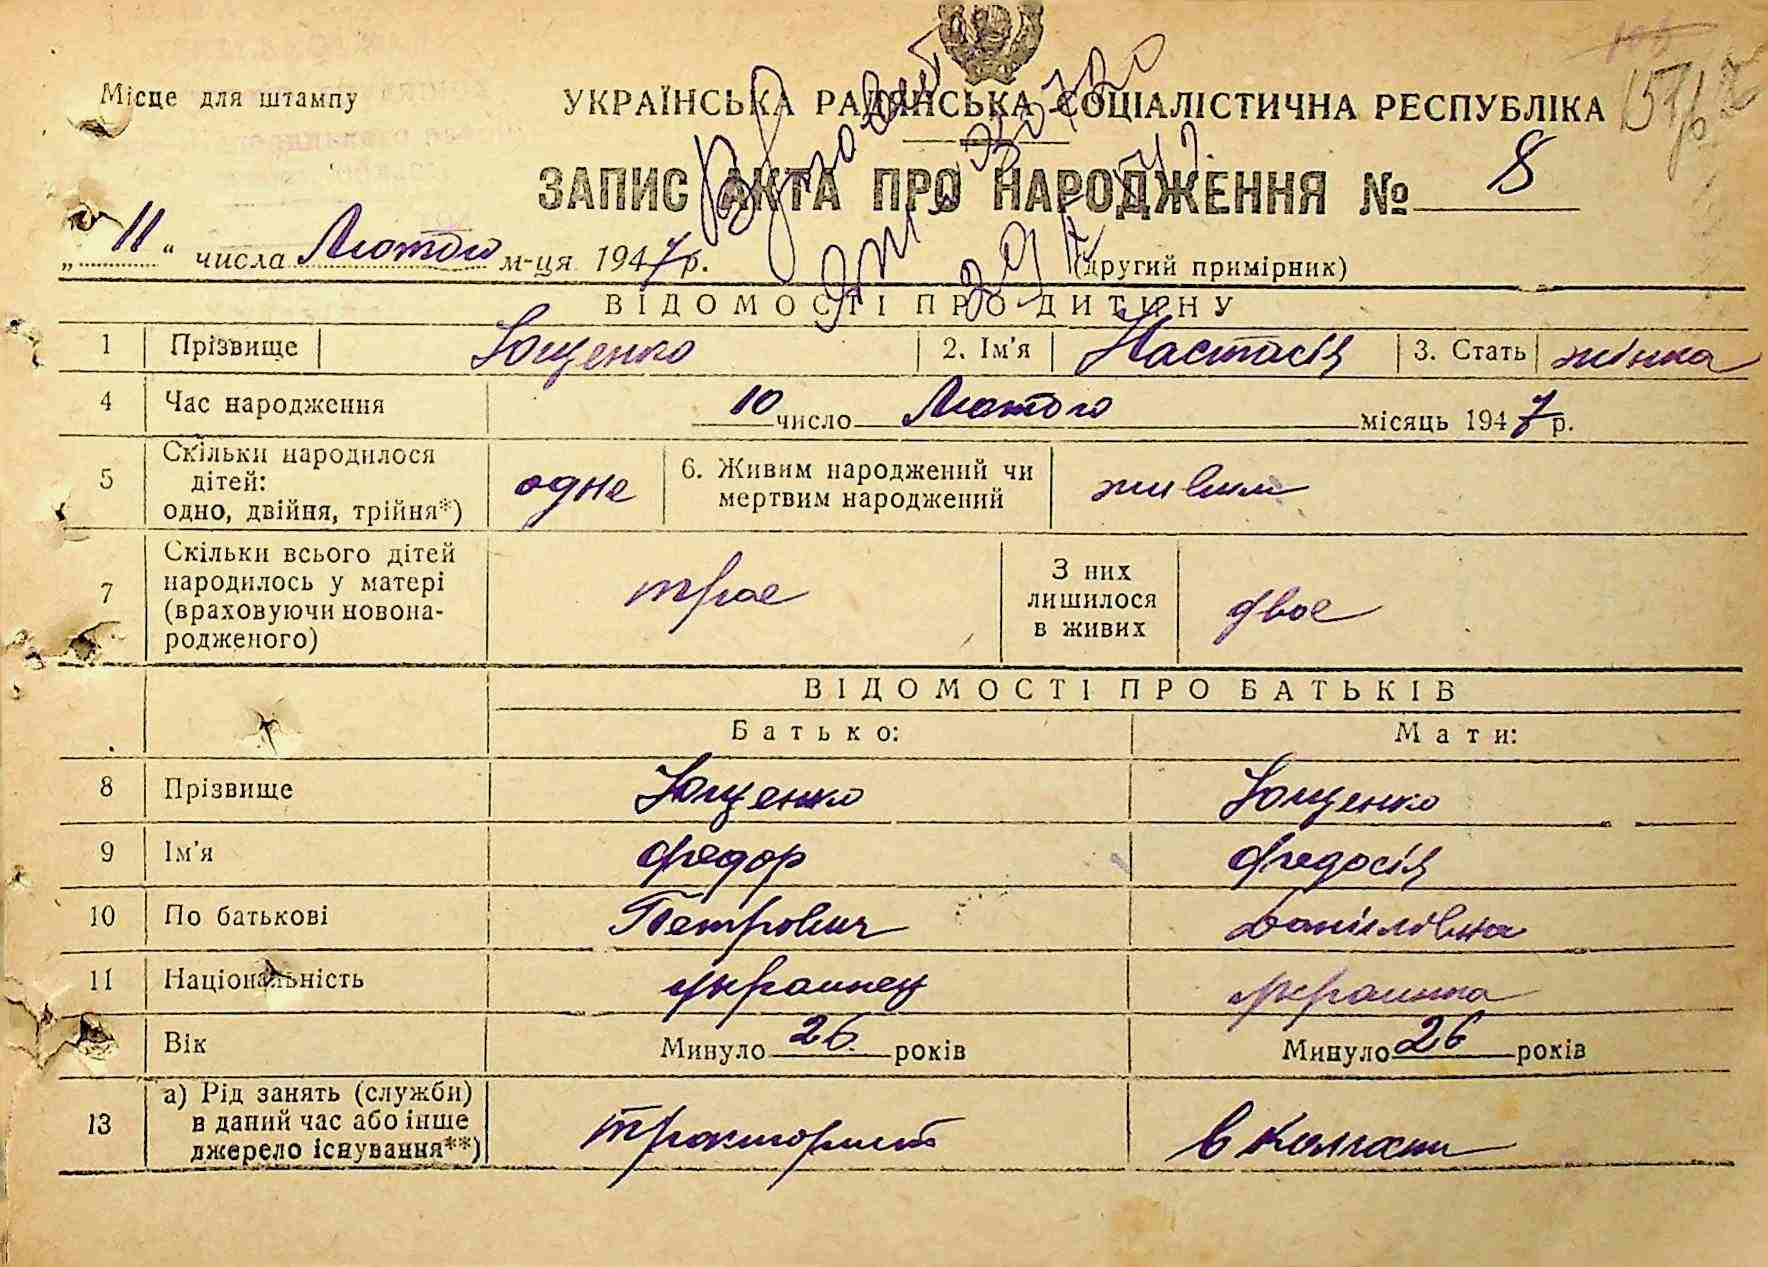 Місце для штампу
УКРАЇНСЬКА РАДЯНСЬКА СОЦІАЛІСТИЧНА РЕСПУБЛІКА
ЗАПИС АКТА ПРО НАРОДЖЕННЯ № 8
„11“ числа Лютого м-ця 1947 р.
(другий примірник)
ВІДОМОСТІ ПРО ДИТИНУ
1 Прізвище Ющенко 2. Ім'я Настасія 3. Стать жінка
4 Час народження 10 число Лютого місяць 1947 р.
5 Скільки народилося дітей: одно, двійня, трійня*) одне 6. Живим народжений чи мертвим народжений живим
7 Скільки всього дітей народилось у матері (враховуючи новонародженого) троє З них лишилося в живих двоє
ВІДОМОСТІ ПРО БАТЬКІВ
Батько: Мати:
8 Прізвище Ющенко Ющенко
9 Ім'я Федор Федосія
10 По батькові Петрович Данілівна
11 Національність украинец украинка
Вік Минуло 26 років Минуло 26 років
13 а) Рід занять (служби) в даний час або інше джерело існування**) тракторист в колгоспі